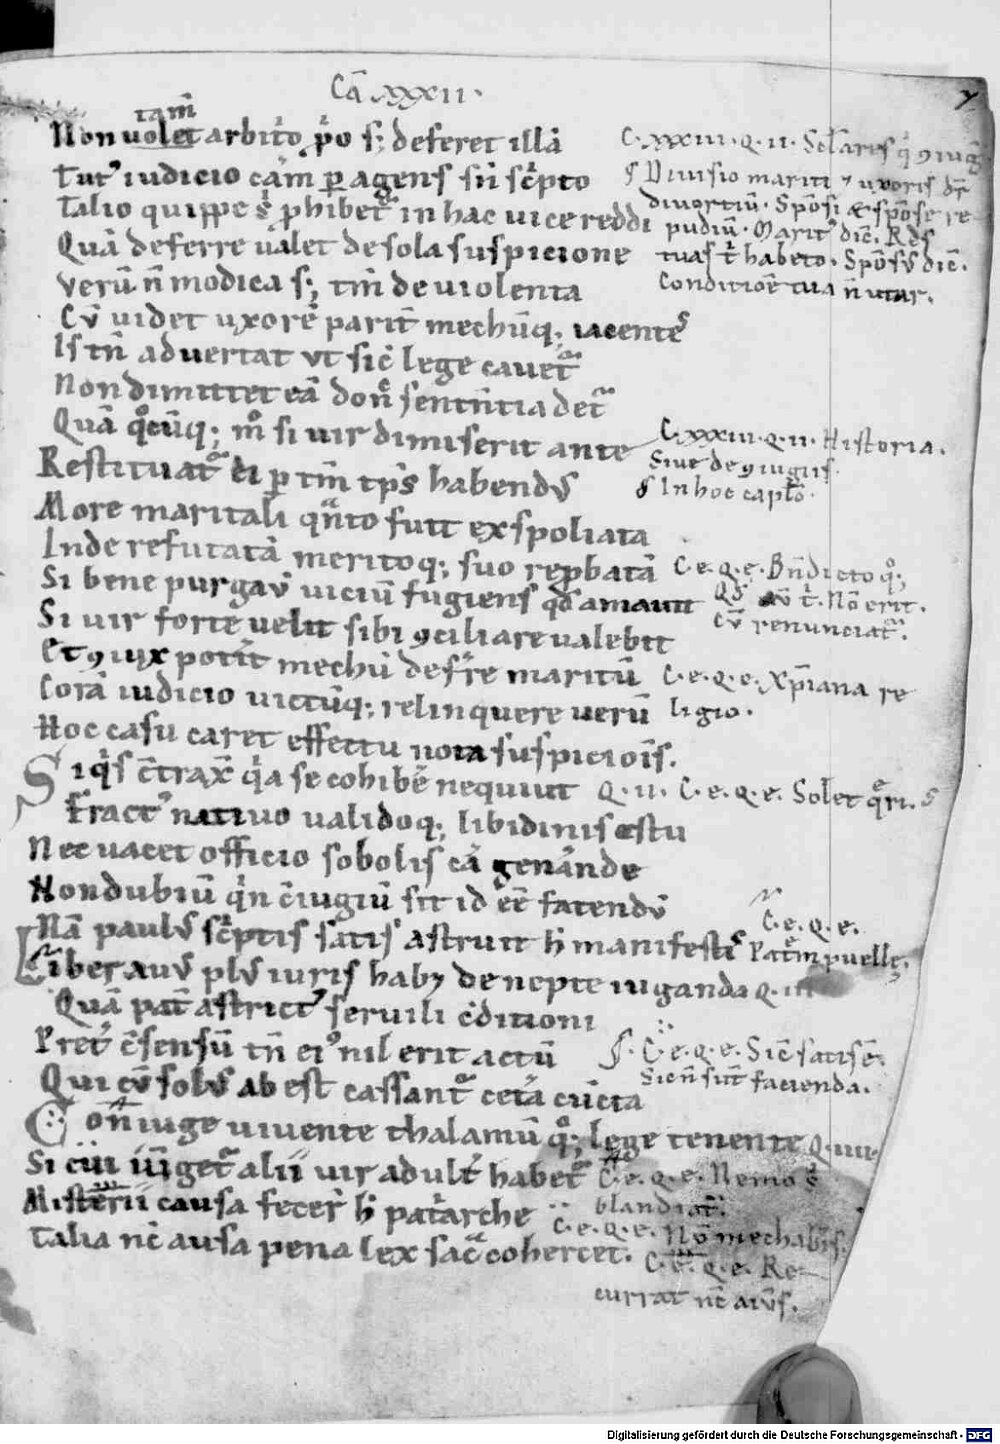 Cā xxxii.
7
tam̄
Non uolet arbit'o p̄o s; deferet illā
Tut' iudicio cām p agens sn̄ sc̓pto
Talio quippe ꝓhibet' in hac uice reddi
Quā deferre ualet de sola suspicione
Verū n̄ modica s; tm̄ de uiolenta
Cū uidet uxorē parit' mechūq; iacentes
Is tn̄ aduertat ut sic̄ lege cauet'
Non dimittet eā donc̄ sententia det'
Quā q̊cūq; m̊ si uir dimiserit ante
Restituat' ei p tm̄ tp̄s habendus
More maritali qn̄to fuit exspoliata
Inde refutatā meritoq; suo reprobatā
Si bene purgau' uiciū fugiens qd amauit
Si uir forte uelit sibi 9ciliare ualebit
Et 9iux potit mechū defr̄e maritū
Corā iudicio uictūq; relinquere uerū
Hoc casu caret effectu nota suspiciois̄.
Si q's c̄trax̄ q'a se cohibē nequiuit
Fract' natiuo ualidoq; libidinis estu
Nec uacet officio sobolis cā genande
Non dubiū q'n c̄iugiū sit id eē fatendū
Nā paulus sc̓ptis satis astruit h̄ manifestis
Liber auus plus iuris habꝫ de nepte iuganda Q. iii
Quā pat' astrict' seruili c̄ditioni
Pret' c̄sensū tn̄ ei' nil erit actū
Qui cū solus ab est cassant' cetā cūcta
Con̄iuge uiuente thalamū q; lege tenente Q. iiii.
Si cui iūget' alii uir adult' habet'
Misterii causa fecer' h̄ pat'arche
Talia nc̄ ausa pena lex sac̄ cohercet.
C. xxxiii. q. ii. Scl'aris q' 9iug
§ Diuisio mariti ⁊ uxoris dr̄
diuortiū. Spōsi & spōse re
pudiū. Marit' dic̄. Res
tuas t' habeto. Spōsus dic̄.
Conditiōe tua n̄ utar.
C. xxxiii. q. ii. Historia.
Siue de 9iugiis.
§ In hoc capl'o.
C. e. q. e. Bn̄dicto q;
Qd' au' t'. Nō erit.
Cū renunciat'.
C. e. q. e. Xp̄iana re
ligio.
Q. ii. C. e. q. e. Solet q̄ri. §
C. e. q. e.
Patm̄ puellę.
§. C. e. q. e. Sic̄ satis ē.
Sic n̄ sūt facienda.
C. e. q. e. Nemo s'
blandiat'.
C. e. q. e. Nō mechab'is.
C. e. q. e. Re
currat nc̄ auus.
Digitalisierung gefördert durch die Deutsche Forschungsgemeinschaft - DFG